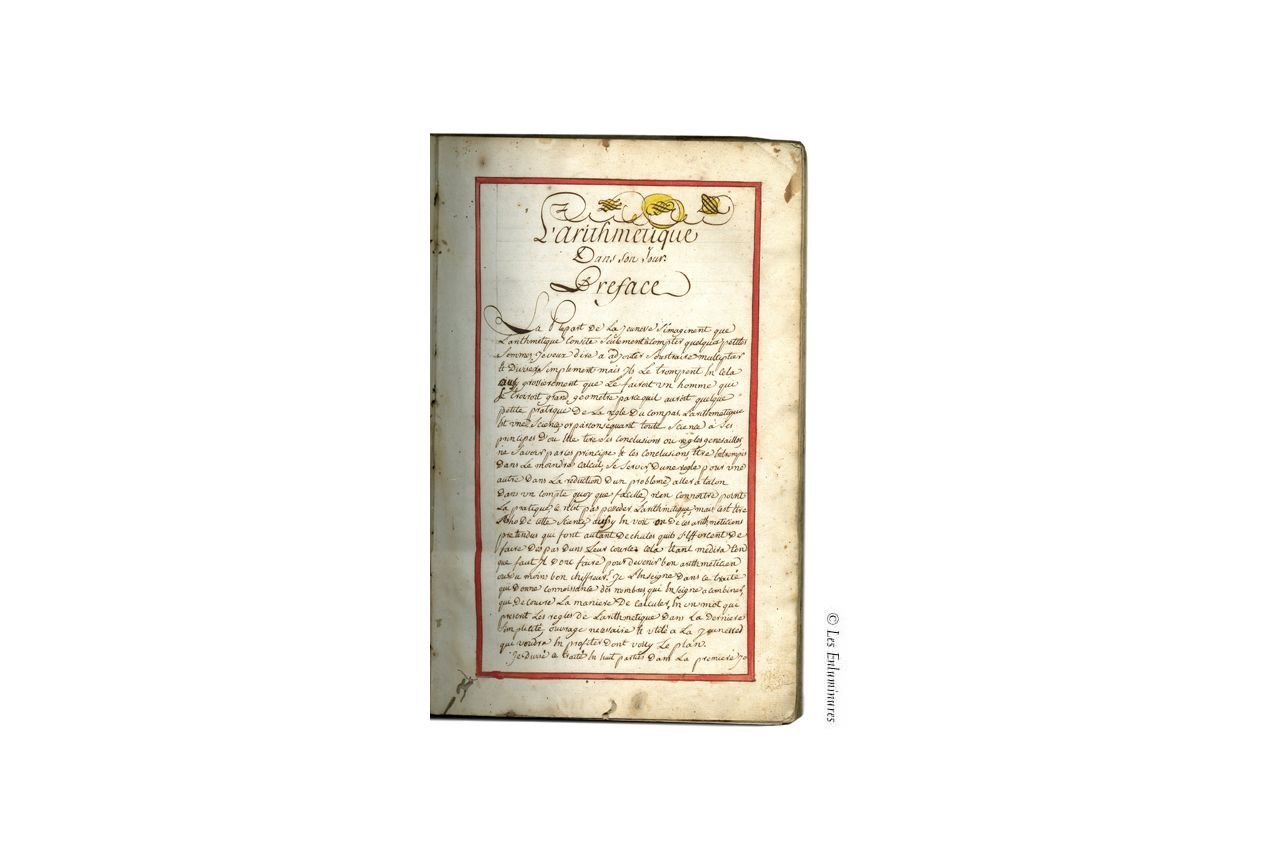 L'arithmetique
Dans son Jour.
Preface
La Plepart de la jeunesse s'imaginent que
L'arithmetique consite seulement a compter quelques petites
sommes, je veux dire a adjouter soustraire multiplier
et diviser simplement mais ils se trompent en cela
aussy grossierement que le fairoit un homme qui
se croiroit grand geometre parcequil auroit quelque
petite pratique de la regle du compas L'arithmetique
est une science, or par consequant toute science a ses
principes d'ou elle tire ses conclusions ou regles generalles,
ne savoir pas les principes et les conclusions, etre
dans le moindre calcul, se servir d'une regle pour une
autre dans la reduction d'un probleme, aller a taton
dans un compte quoy que facille, n'en connoitre point
la pratique, ce n'est pas posseder L'arithmetique, mais c'est etre
de cette science, aussy en voit on de ces arithmeticiens
pretendus qui font autant de chutes quils s'efforcent de
faire des pas dans leur course cela etant me dira t'en
que faut il donc faire pour devenir bon arithmeticien
ou du moins bon chiffreur? Je l'enseigne dans ce traité
qui donne connoissance des nombres, qui enseigne a combiner,
qui decouvre la maniere de calculer, en un mot qui
present les regles de L'arithmetique dans la derniere
simplicité, ouvrage necessaire et utile a la jeunesse
qui voudra en profiter dont voicy le plan.
Je divise ce traité en huit parties dans la premiere jo
© Les Enluminures